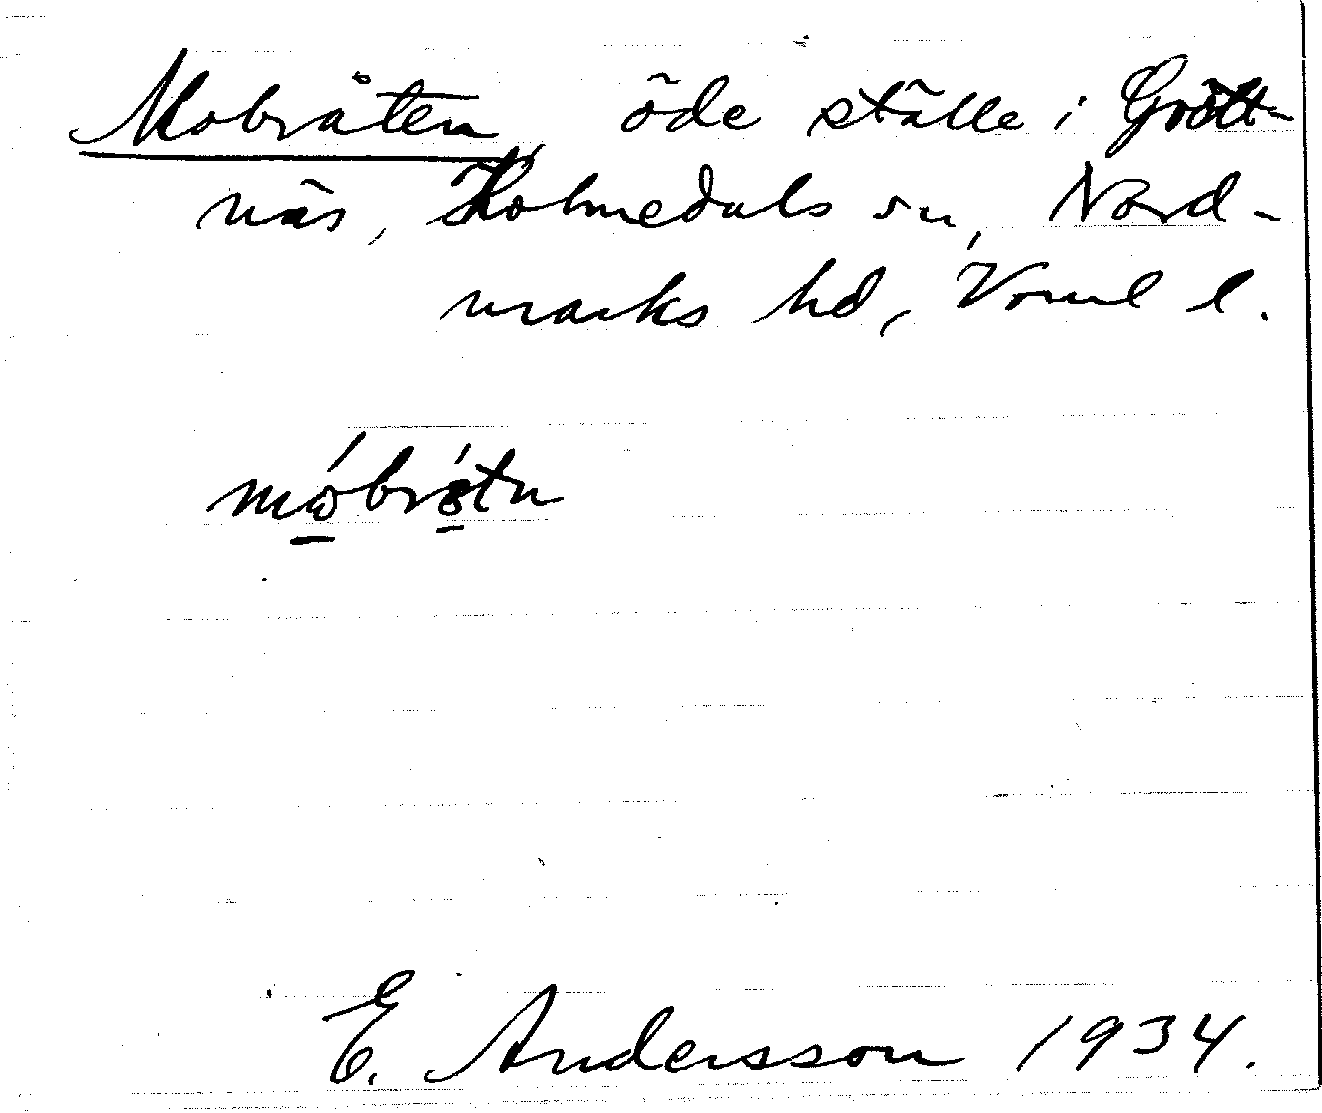 Mobråten, öde ställe i Grött-
näs, Holmedals sn, Nord-
marks hd, Värml l.
móbrótn
E. Andersson 1934.